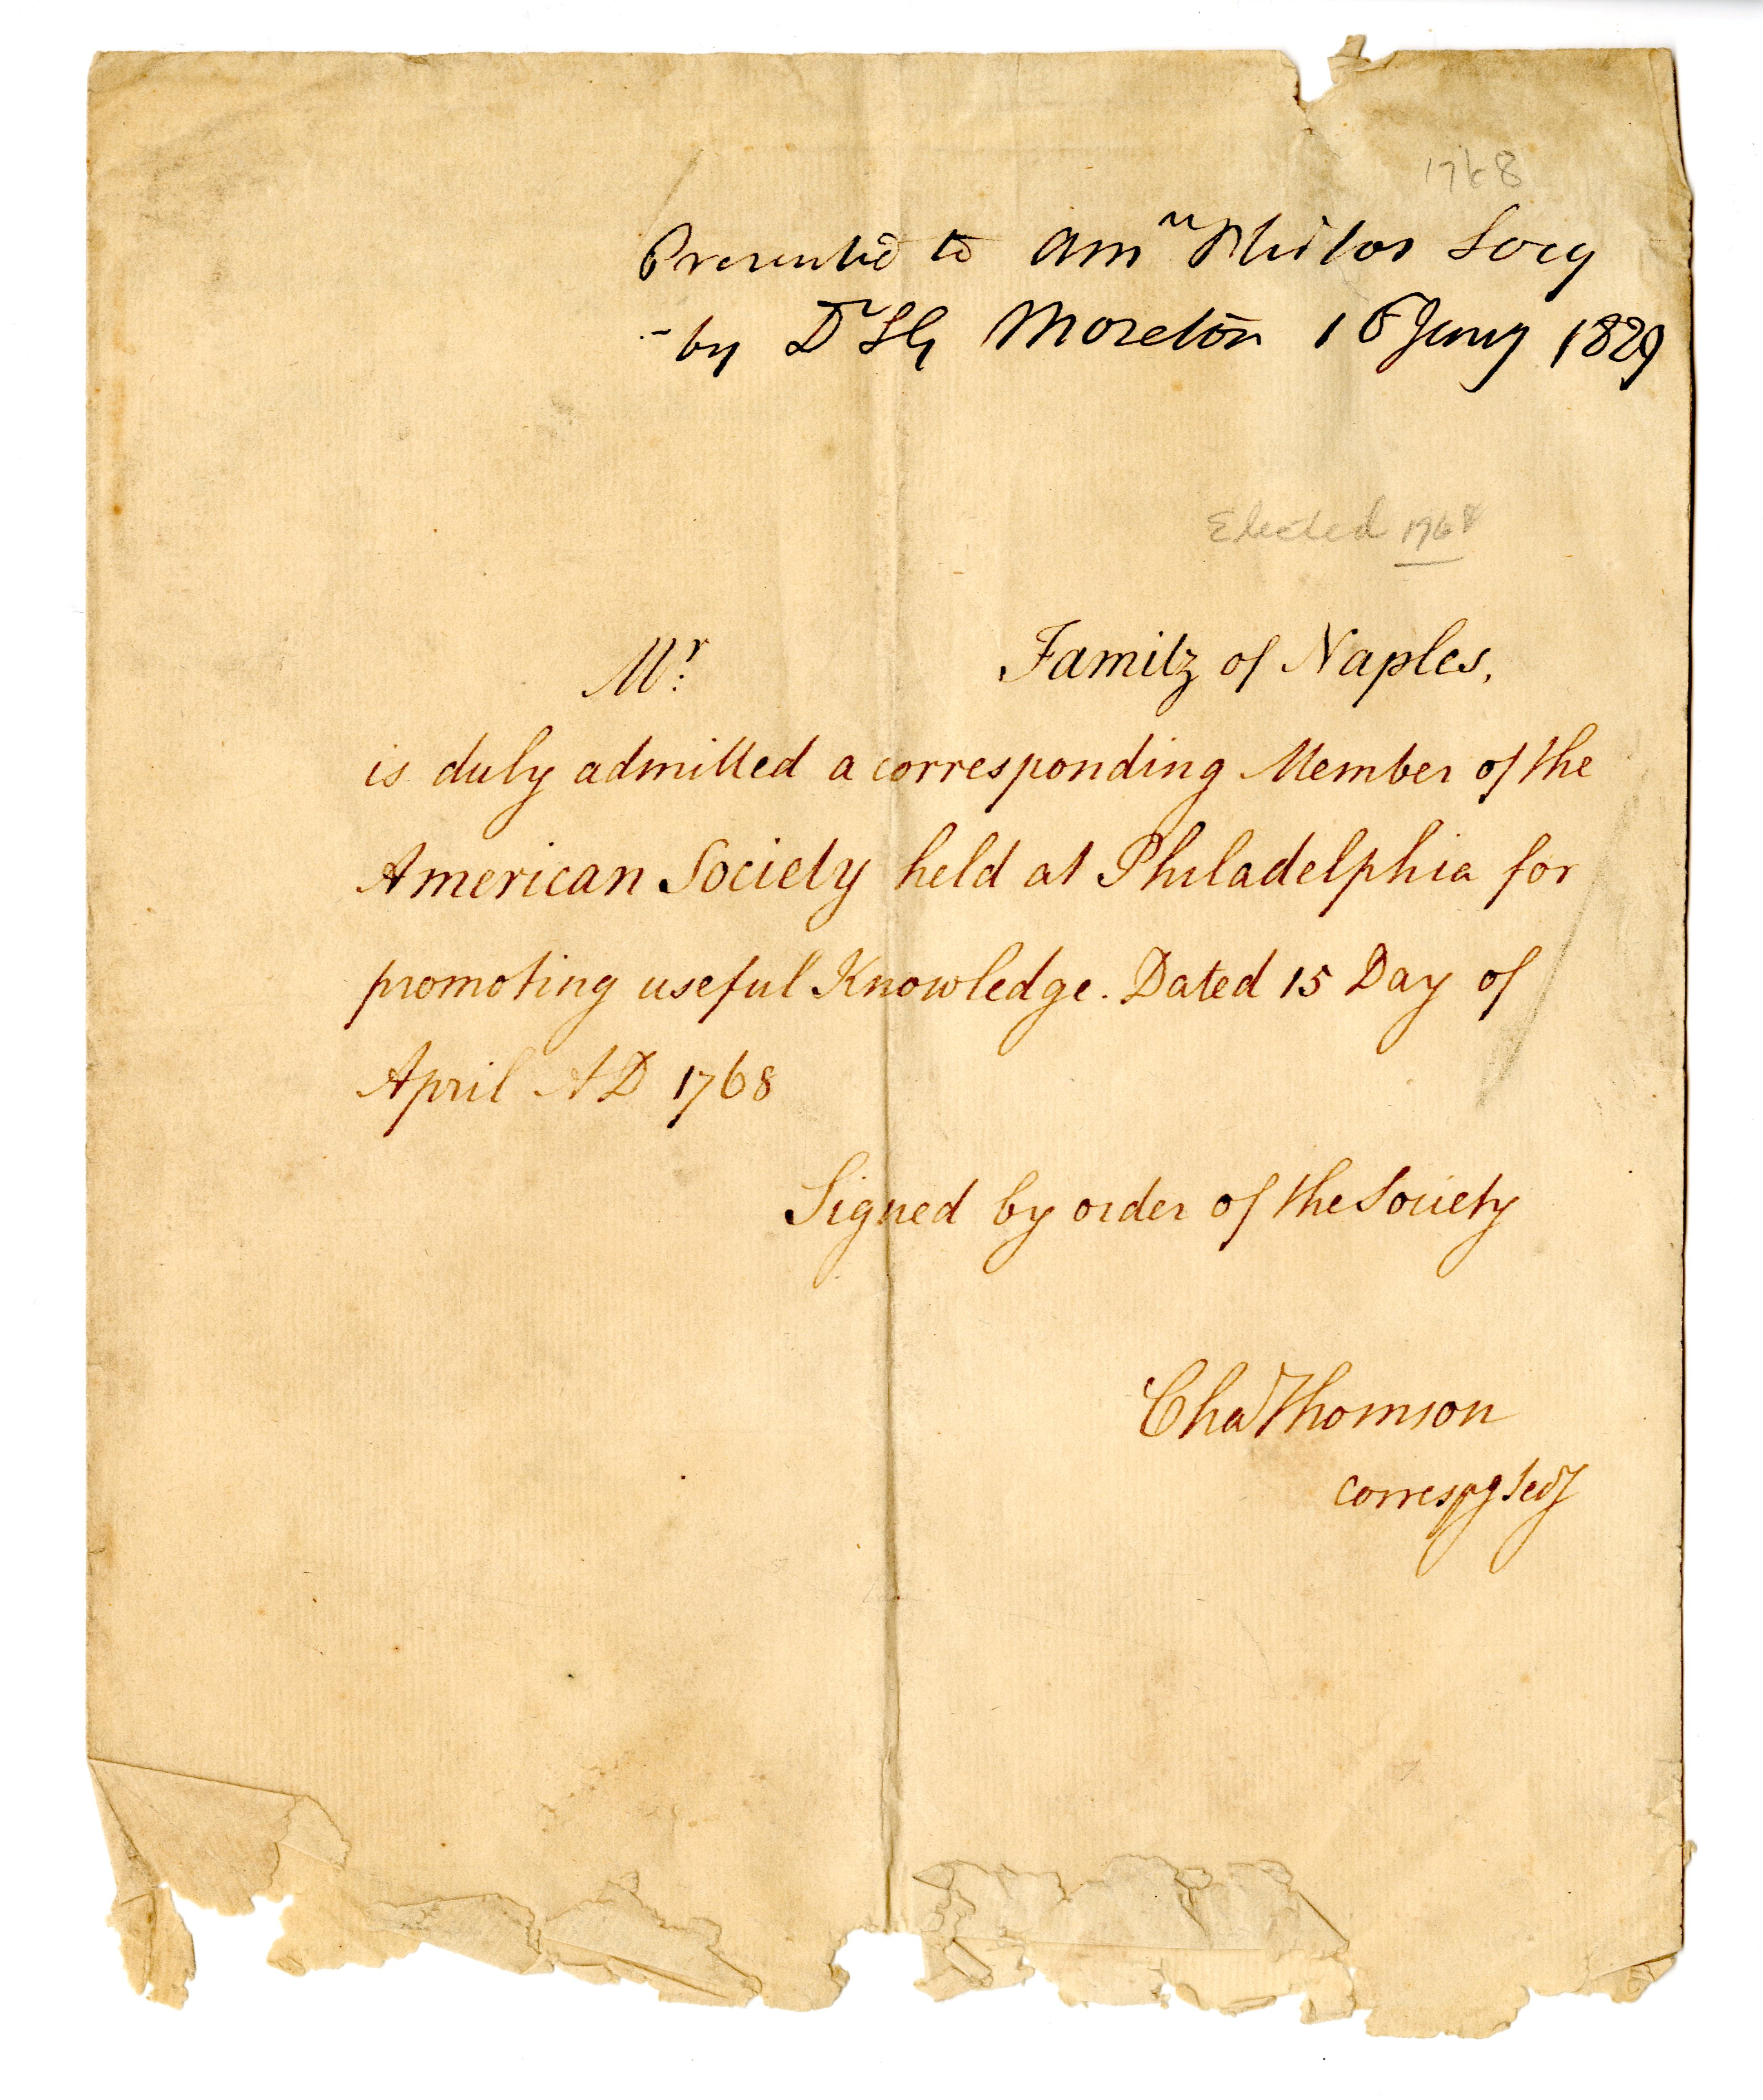 1768
Presented to Amn Philos Socy
- by Dr SG Moreton 16 Jany 1829
Elected 1768
Mr: Famitz of Naples,
is duly admitted a corresponding Member of the
American Society held at Philadelphia for
promoting useful Knowledge. Dated 15 Day of
April AD 1768
Signed by order of the Society
Cha Thomson
correspg Secy